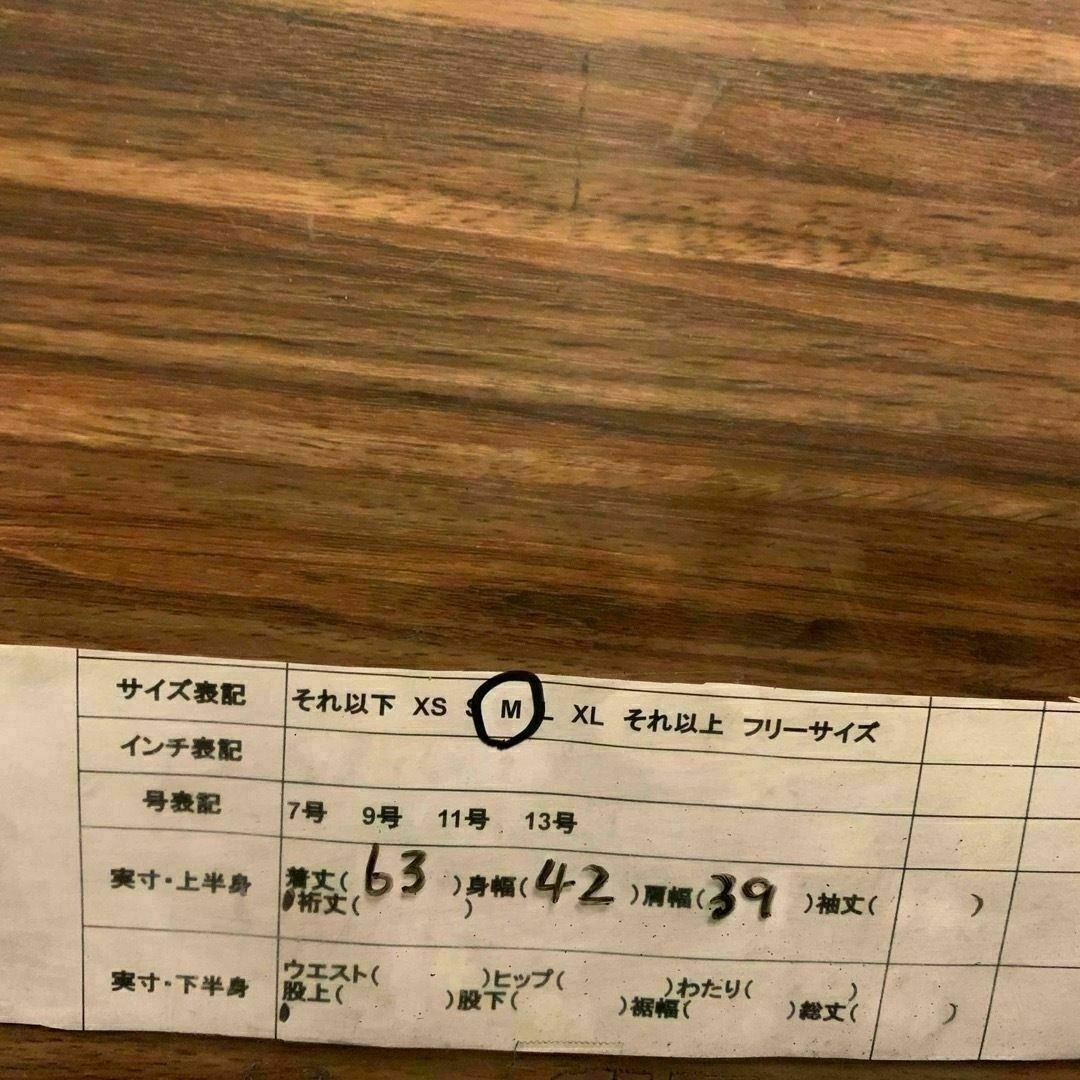 サイズ表記 それ以下 XS S M L XL それ以上 フリーサイズ
インチ表記
号表記 7号 9号 11号 13号
実寸・上半身 着丈( 63 )身幅( 42 )肩幅( 39 )袖丈( )
裄丈( )
実寸・下半身 ウエスト( )ヒップ( )わたり( )
股上( )股下( )裾幅( )総丈( )